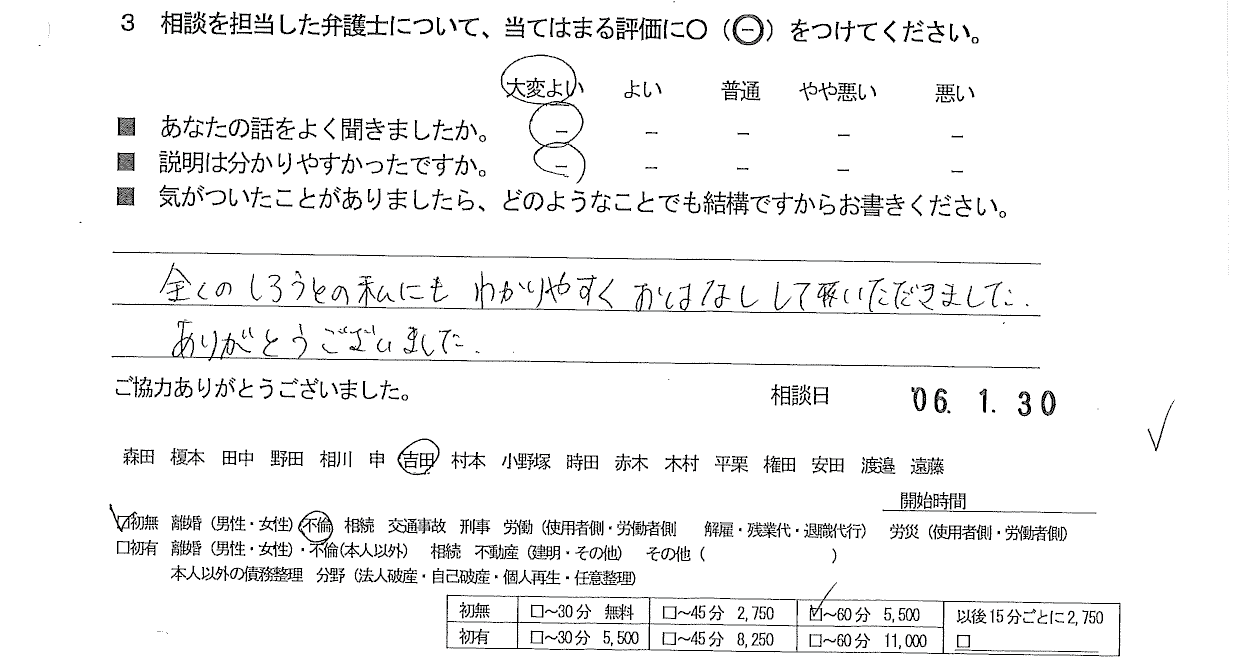 3 相談を担当した弁護士について、当てはまる評価に○（㊀）をつけてください。
大変よい よい 普通 やや悪い 悪い
■ あなたの話をよく聞きましたか。 － － － － －
■ 説明は分かりやすかったですか。 － － － － －
■ 気がついたことがありましたら、どのようなことでも結構ですからお書きください。
全くのしろうとの私にも わかりやすく おはなし して頂いただきました.
ありがとうございました.
ご協力ありがとうございました。 相談日 '06. 1. 30
森田 榎本 田中 野田 相川 申 吉田 村本 小野塚 時田 赤木 木村 平栗 権田 安田 渡邉 遠藤
開始時間
☑初無 離婚（男性・女性）不倫 相続 交通事故 刑事 労働（使用者側・労働者側 解雇・残業代・退職代行） 労災（使用者側・労働者側）
□初有 離婚（男性・女性）・不倫（本人以外） 相続 不動産（建明・その他） その他（ ）
本人以外の債務整理 分野（法人破産・自己破産・個人再生・任意整理）
初無 □～30分 無料 □～45分 2,750 ☑～60分 5,500 以後15分ごとに2,750
初有 □～30分 5,500 □～45分 8,250 □～60分 11,000 □